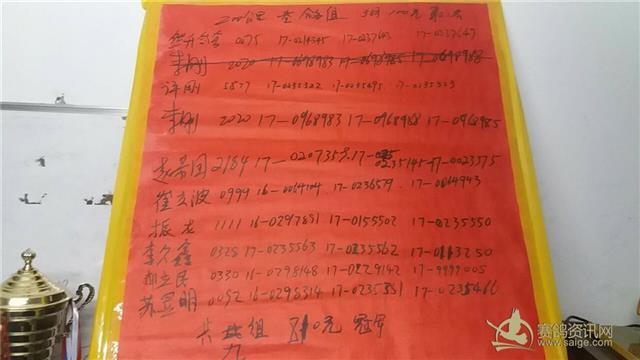 200公里 叁鸽组 3羽100元
0075 17-0214345 17-0237643 17-0237647
李刚 2020 17-0698983 17-0698985 17-0698988
许刚 5827 17-0235322 17-0235495 17-0235323
李刚 2020 17-0968983 17-0968988 17-0968985
赵景国 2164 17-0207359 17-0235145 17-0023575
崔立波 0999 16-0064104 17-0236579 17-0064943
振龙 1111 16-0297831 17-0155502 17-0235550
李久鑫 0325 17-0235563 17-0235562 17-0113250
立民 0330 16-0298148 17-0229142 17-9999005
苏显明 0052 16-0298314 17-0235351 17-0235466
共 九 组 810元 冠军
赛鸽资讯网
www.saige.com